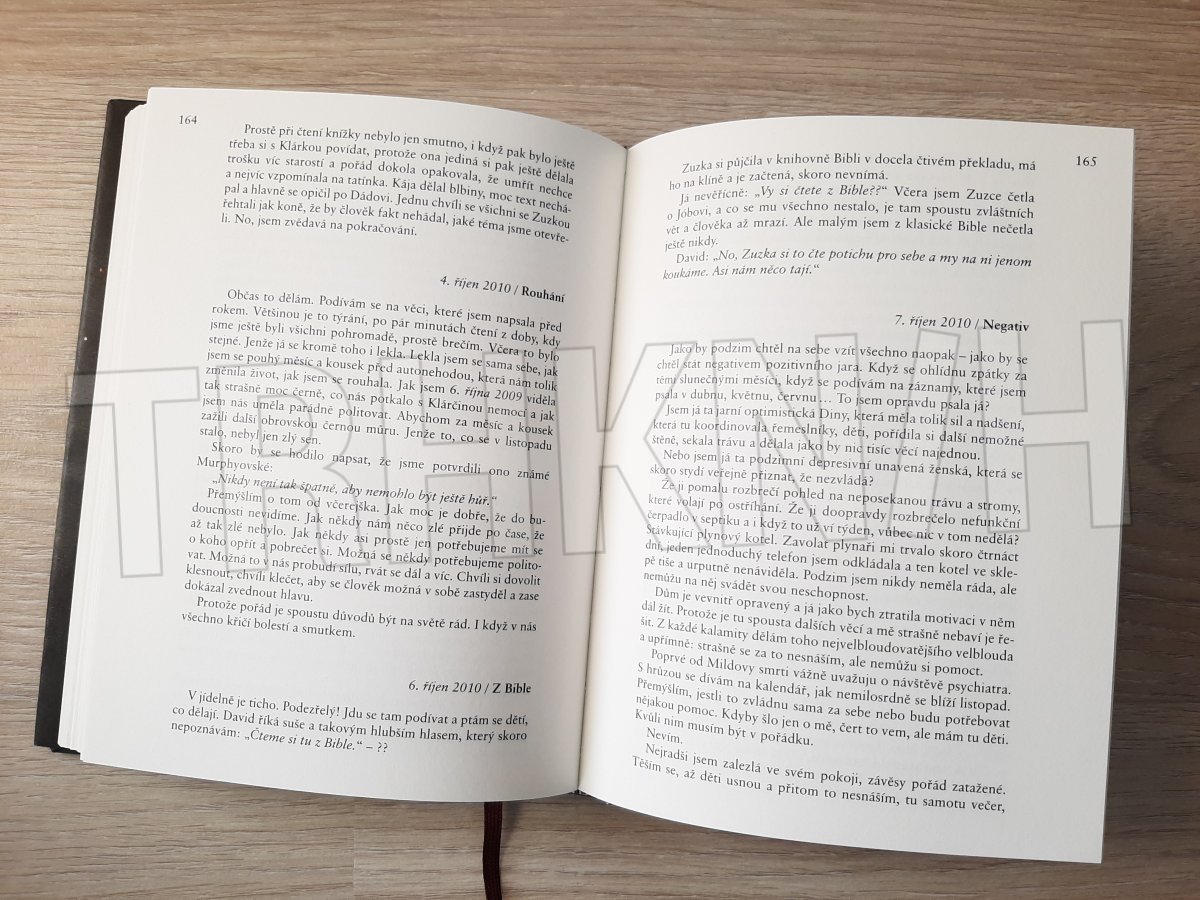 164
Prostě při čtení knížky nebylo jen smutno, i když pak bylo ještě
třeba si s Klárkou povídat, protože ona jediná si pak ještě dělala
trošku víc starostí a pořád dokola opakovala, že umřít nechce
a nejvíc vzpomínala na tatínka. Kája dělal blbiny, moc text nechá-
pal a hlavně se opičil po Dádovi. Jednu chvíli se všichni se Zuzkou
řehtali jak koně, že by člověk fakt nehádal, jaké téma jsme otevře-
li. No, jsem zvědavá na pokračování.
4. říjen 2010 / Rouhání
Občas to dělám. Podívám se na věci, které jsem napsala před
rokem. Většinou je to týrání, po pár minutách čtení z doby, kdy
jsme ještě byli všichni pohromadě, prostě brečím. Včera to bylo
stejné. Jenže já se kromě toho i lekla. Lekla jsem se sama sebe, jak
jsem se pouhý měsíc a kousek před autonehodou, která nám tolik
změnila život, jak jsem se rouhala. Jak jsem 6. října 2009 viděla
tak strašně moc černě, co nás potkalo s Klárčinou nemocí a jak
jsem nás uměla parádně politovat. Abychom za měsíc a kousek
zažili další obrovskou černou můru. Jenže to, co se v listopadu
stalo, nebyl jen zlý sen.
Skoro by se hodilo napsat, že jsme potvrdili ono známé
Murphyovské:
„Nikdy není tak špatně, aby nemohlo být ještě hůř.“
Přemýšlím o tom od včerejška. Jak moc je dobře, že do bu-
doucnosti nevidíme. Jak někdy nám něco zlé přijde po čase, že
až tak zlé nebylo. Jak někdy asi prostě jen potřebujeme mít se
o koho opřít a pobrečet si. Možná se někdy potřebujeme polito-
vat. Možná to v nás probudí sílu, rvát se dál a víc. Chvíli si dovolit
klesnout, chvíli klečet, aby se člověk možná v sobě zastyděl a zase
dokázal zvednout hlavu.
Protože pořád je spoustu důvodů být na světě rád. I když v nás
všechno křičí bolestí a smutkem.
6. říjen 2010 / Z Bible
V jídelně je ticho. Podezřelý! Jdu se tam podívat a ptám se dětí,
co dělají. David říká suše a takovým hlubším hlasem, který skoro
nepoznávám: „Čteme si tu z Bible.“ – ??
165
Zuzka si půjčila v knihovně Bibli v docela čtivém překladu, má
ho na klíně a je začtená, skoro nevnímá.
Já nevěřícně: „Vy si čtete z Bible??“ Včera jsem Zuzce četla
o Jóbovi, a co se mu všechno nestalo, je tam spoustu zvláštních
vět a člověka až mrazí. Ale malým jsem z klasické Bible nečetla
ještě nikdy.
David: „No, Zuzka si to čte potichu pro sebe a my na ni jenom
koukáme. Asi nám něco tají.“
7. říjen 2010 / Negativ
Jako by podzim chtěl na sebe vzít všechno naopak – jako by se
chtěl stát negativem pozitivního jara. Když se ohlídnu zpátky za
těmi slunečnými měsíci, když se podívám na záznamy, které jsem
psala v dubnu, květnu, červnu… To jsem opravdu psala já?
Jsem já ta jarní optimistická Diny, která měla tolik sil a nadšení,
která tu koordinovala řemeslníky, děti, pořídila si další nemožné
štěně, sekala trávu a dělala jako by nic tisíc věcí najednou.
Nebo jsem já ta podzimní depresivní unavená ženská, která se
skoro stydí veřejně přiznat, že nezvládá?
Že ji pomalu rozbrečí pohled na neposekanou trávu a stromy,
které volají po ostříhání. Že ji doopravdy rozbrečelo nefunkční
čerpadlo v septiku a i když to už ví týden, vůbec nic v tom nedělá?
Stávkující plynový kotel. Zavolat plynaři mi trvalo skoro čtrnáct
dní, jeden jednoduchý telefon jsem odkládala a ten kotel ve skle-
pě tiše a urputně nenáviděla. Podzim jsem nikdy neměla ráda, ale
nemůžu na něj svádět svou neschopnost.
Dům je vevnitř opravený a já jako bych ztratila motivaci v něm
dál žít. Protože je tu spousta dalších věcí a mě strašně nebaví je ře-
šit. Z každé kalamity dělám toho nejvelbloudovatějšího velblouda
a upřímně: strašně se za to nesnáším, ale nemůžu si pomoct.
Poprvé od Mildovy smrti vážně uvažuju o návštěvě psychiatra.
S hrůzou se dívám na kalendář, jak nemilosrdně se blíží listopad.
Přemýšlím, jestli to zvládnu sama za sebe nebo budu potřebovat
nějakou pomoc. Kdyby šlo jen o mě, čert to vem, ale mám tu děti.
Kvůli nim musím být v pořádku.
Nevím.
Nejradši jsem zalezlá ve svém pokoji, závěsy pořád zatažené.
Těším se, až děti usnou a přitom to nesnáším, tu samotu večer,
TRHKNIH